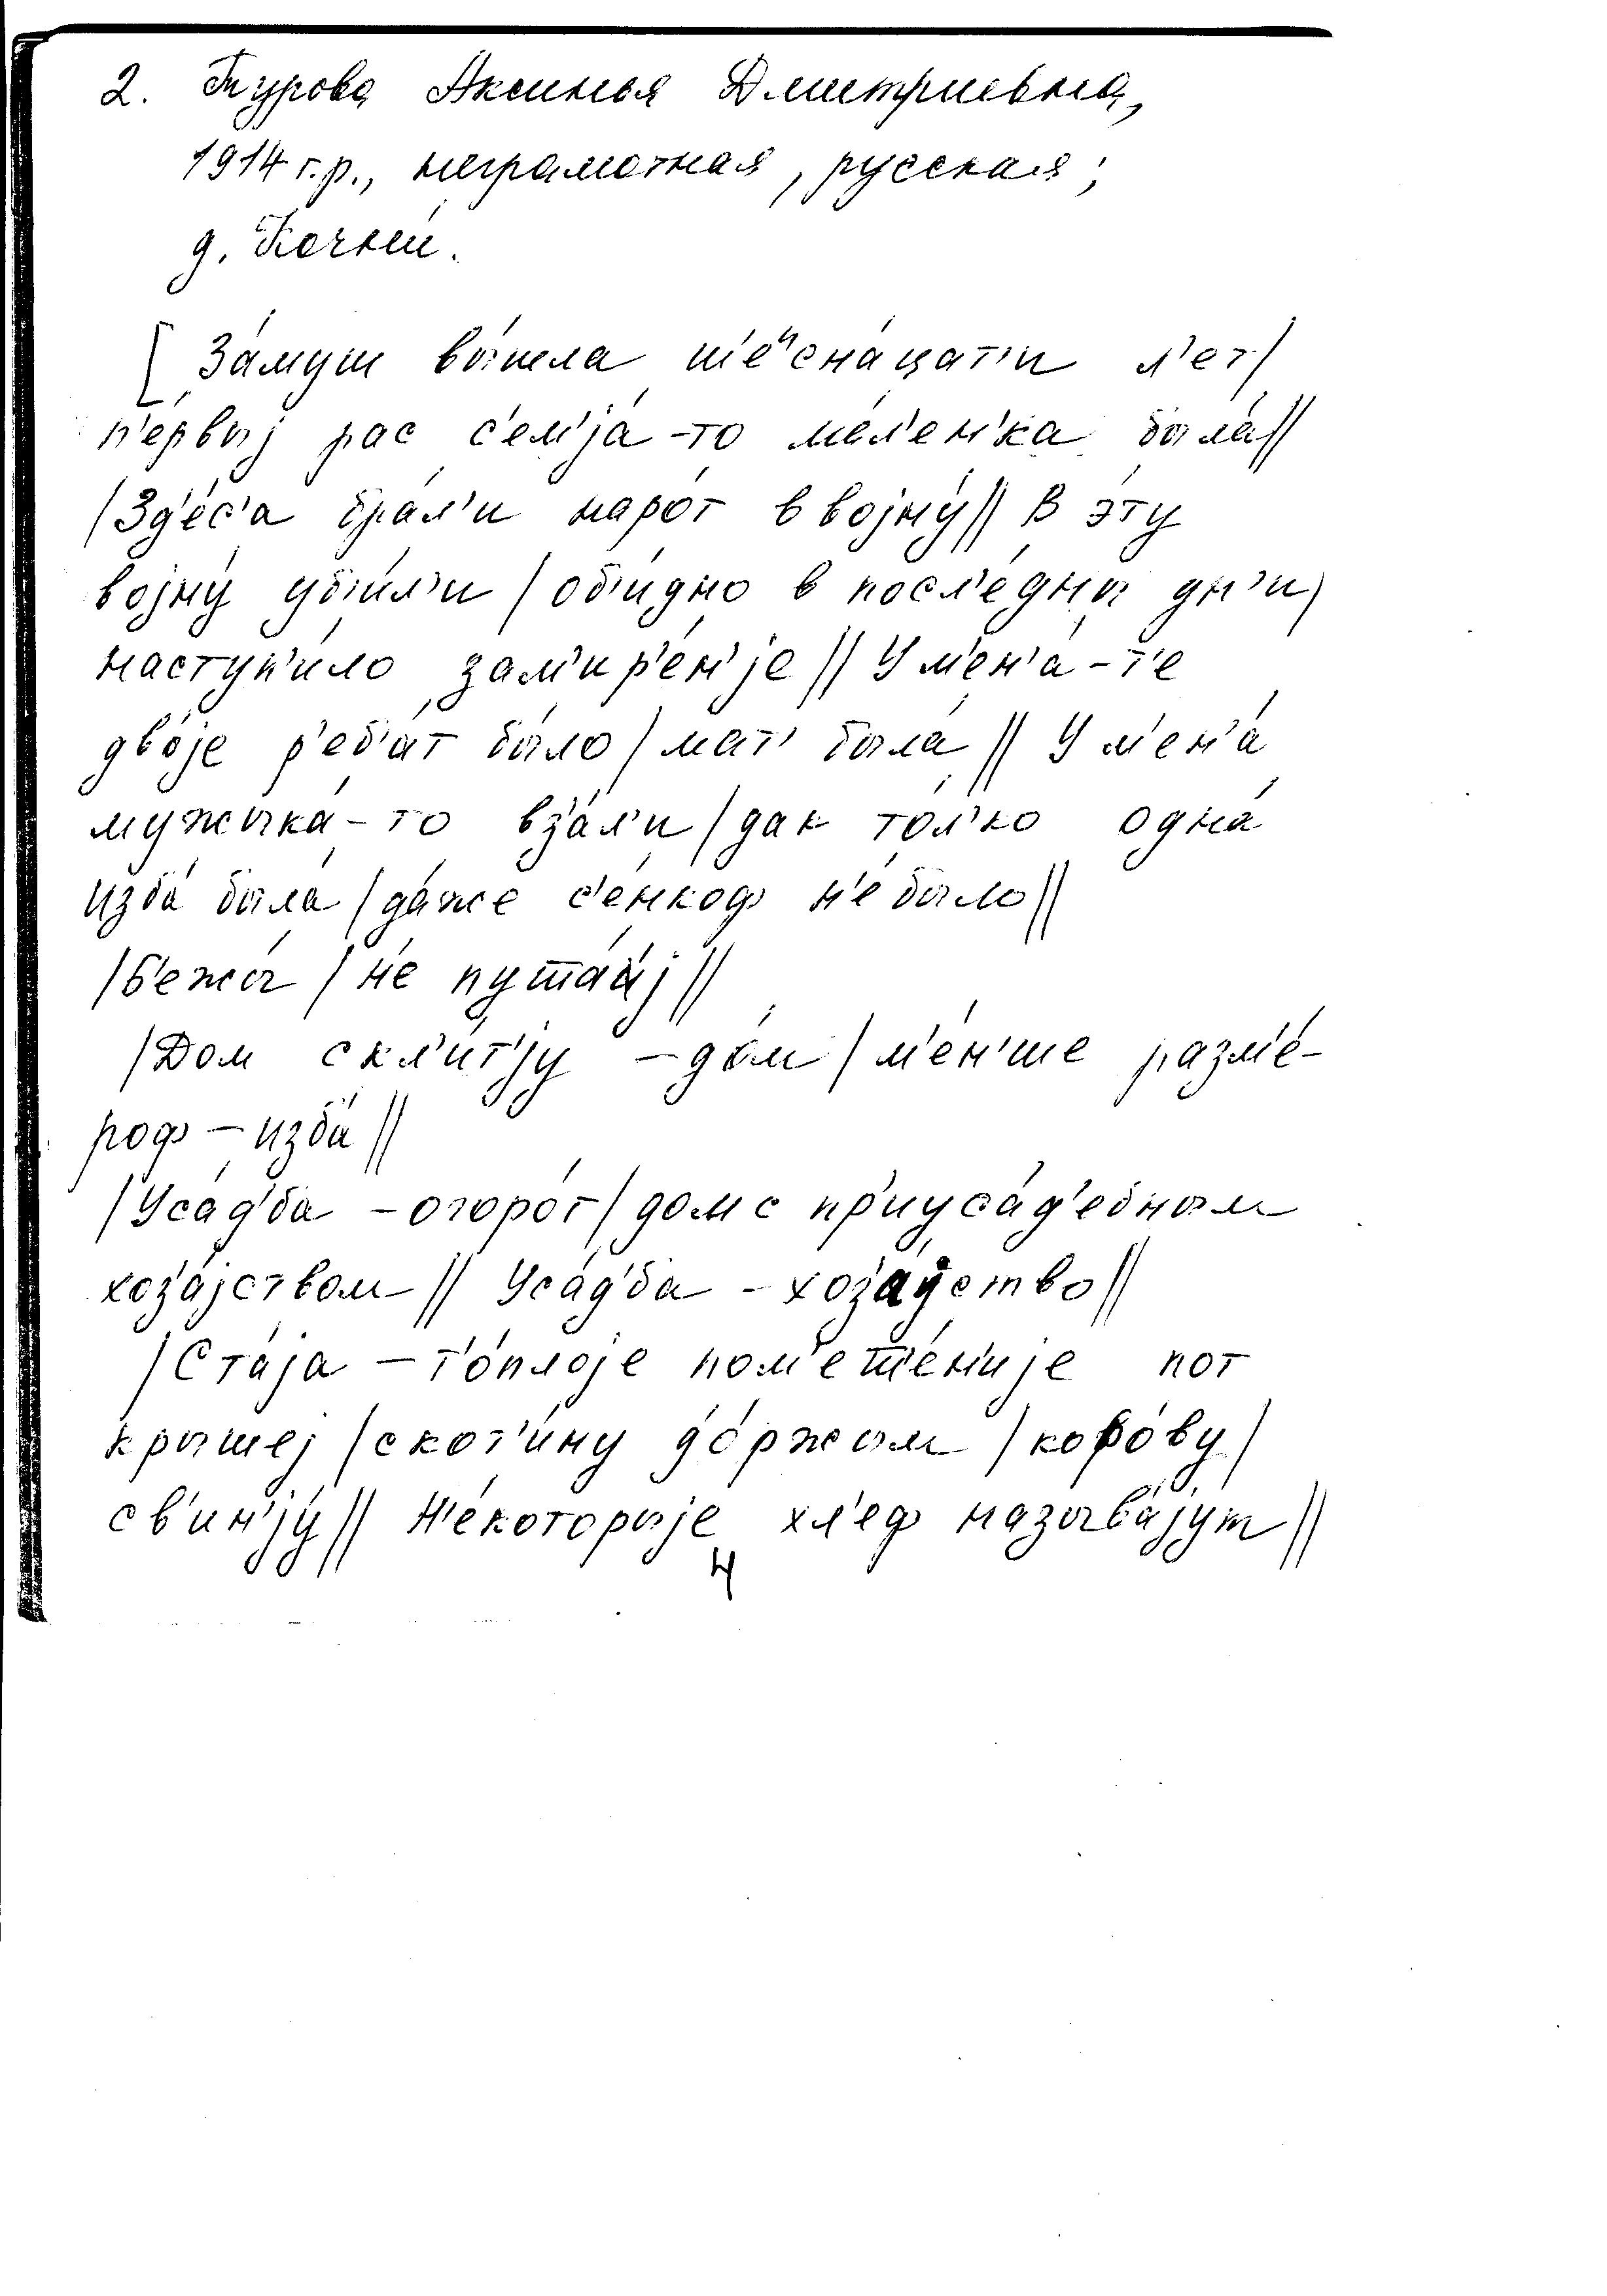 2. Турова Аксинья Дмитриевна,
1914 г.р., неграмотная, русская;
д. Кочни.
[ За́муш вы́шла ш'еᶤсна́цат'и л'ет/
п'е́рвыj рас с'ем'jа́-то ма́л'ен'ка была́//
/Зд'е́с'а бра́л'и наро́т в воjну́// В э́ту
воjну́ уб'и́л'и / об'и́дно в посл'е́дны дн'и/
наступ'и́ло зам'ир'е́н'jе // У м'ен'а́-т'е
дво́jе р'еб'а́т бы́ло / мат' была́ // У м'ен'а́
мужыка́-то вз'а́л'и / дак то́л'ко одна́
изба́ была́ / да́же с'е́нкоф н'е́ было//
/Б'ежы́ / н'е пута́йj //
/Дом с кл'и́т'jу – до́м / м'е́н'ше разм'е́-
роф – изба́ //
/Уса́д'ба – огоро́т / дом с пр'иуса́д'ебным
хоз'а́jством // Уса́д'ба – хоз'а́йство //
/Ста́jа – т'о́плоjе пом'еш'е́н'иjе пот
кры́шеj / скот'и́ну д'о́ржым / коро́ву /
св'ин'jу́ // Н'е́которыjе хл'еф называ́jут //
4